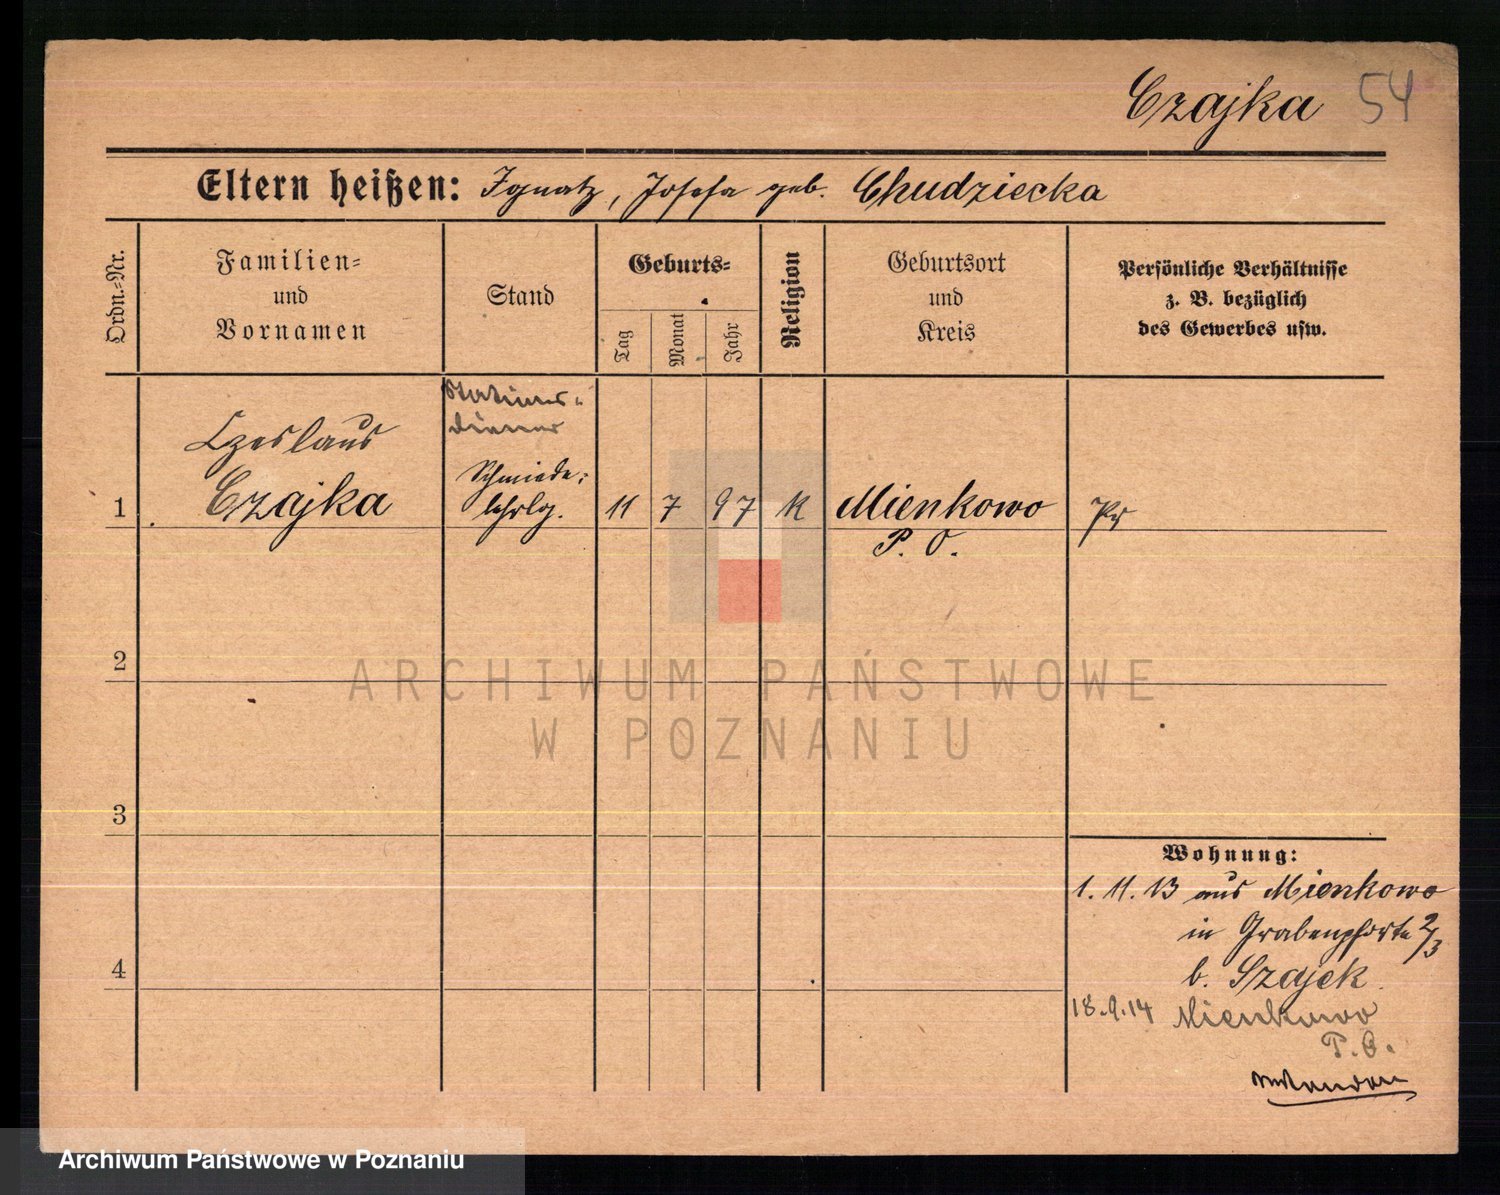 Czajka 54
Eltern heißen: Ignatz, Josefa geb. Chudziecka
Ordn.-Nr.
Familien-
und
Vornamen
Stand
Geburts-
Tag
Monat
Jahr
Religion
Geburtsort
und
Kreis
Persönliche Verhältnisse
z. B. bezüglich
des Gewerbes usw.
Stations-
diener
Czeslaus
Schmiede-
1 Czajka lehrlg. 11 7 97 k Mienkowo Pr
P. O.
2
3
4
Wohnung:
1. 11. 13 aus Mienkowo
in Grabenpforte 2/3
b. Szajek
18.9.14 Mienkowo
P. O.
ARCHIWUM PAŃSTWOWE
W POZNANIU
Archiwum Państwowe w Poznaniu